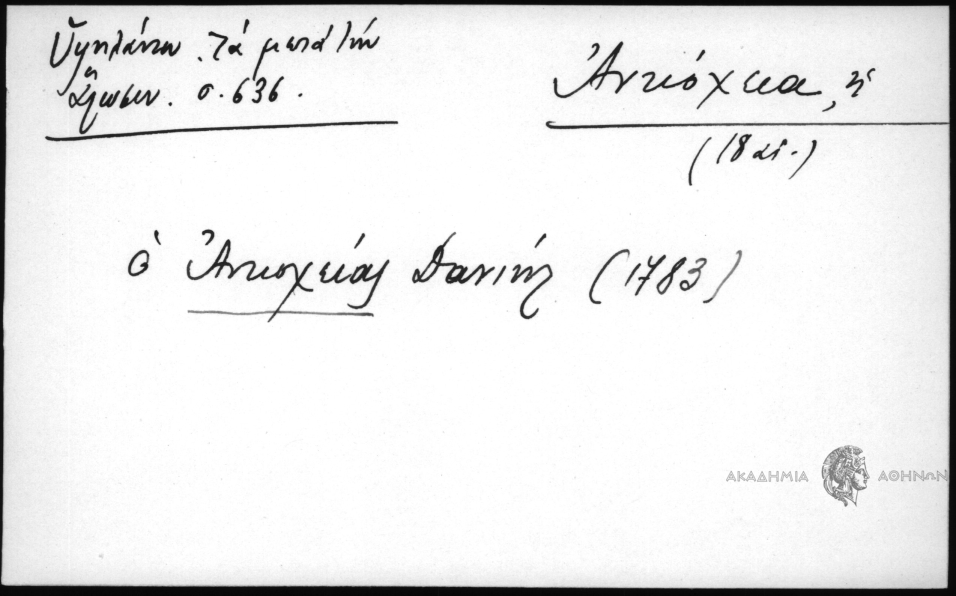 Ὑψηλάντου. τὰ μετὰ τὴν
ἅλωσιν. σ. 636.
Ἀντιόχεια, ἡ
(18 αἰ.)
ὁ Ἀντιοχείας Δανιήλ (1783)
ΑΚΑΔΗΜΙΑ ΑΘΗΝΩΝ